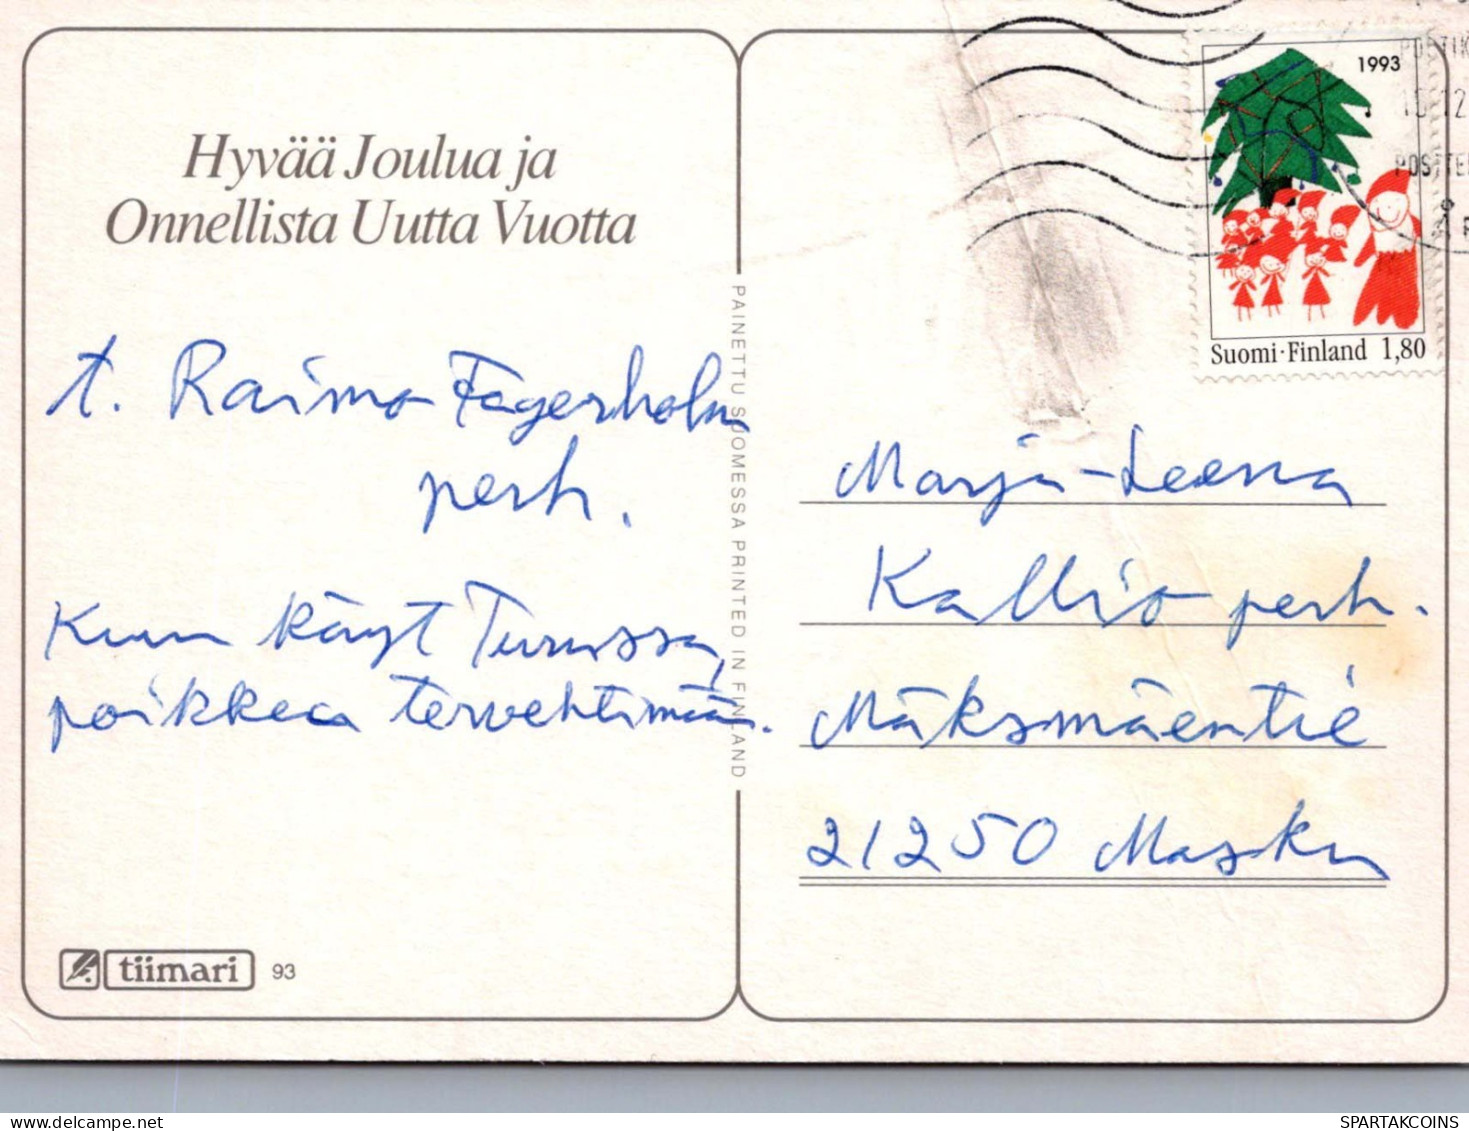 Hyvää Joulua ja
Onnellista Uutta Vuotta
t. Raimo Fagerholm
perh.
Kun käyt Turussa,
poikkea tervehtimään.
tiimari 93
PAINETTU SUOMESSA PRINTED IN FINLAND
1993
Suomi·Finland 1,80
Marja-Leena
Kallio perh.
Mäksmäentie
21250 Masku
SPARTAKCOINS